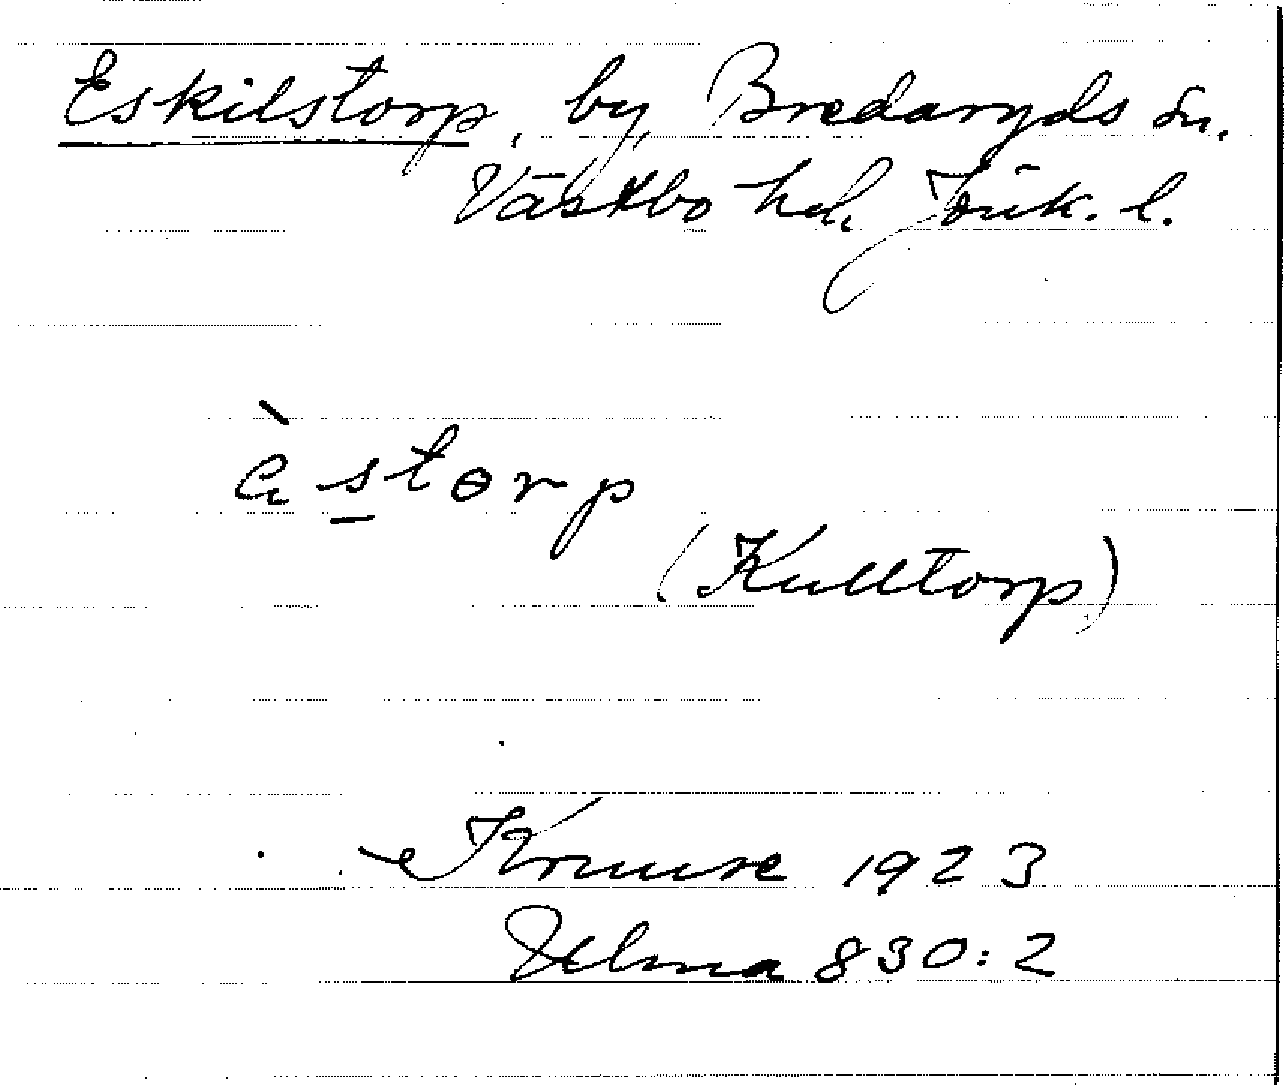 Eskilstorp, by, Bredaryds sn.
Västbo hd. Jönk. l.
(Kulltorp)
Kruuse 1923
Ulma 830:2